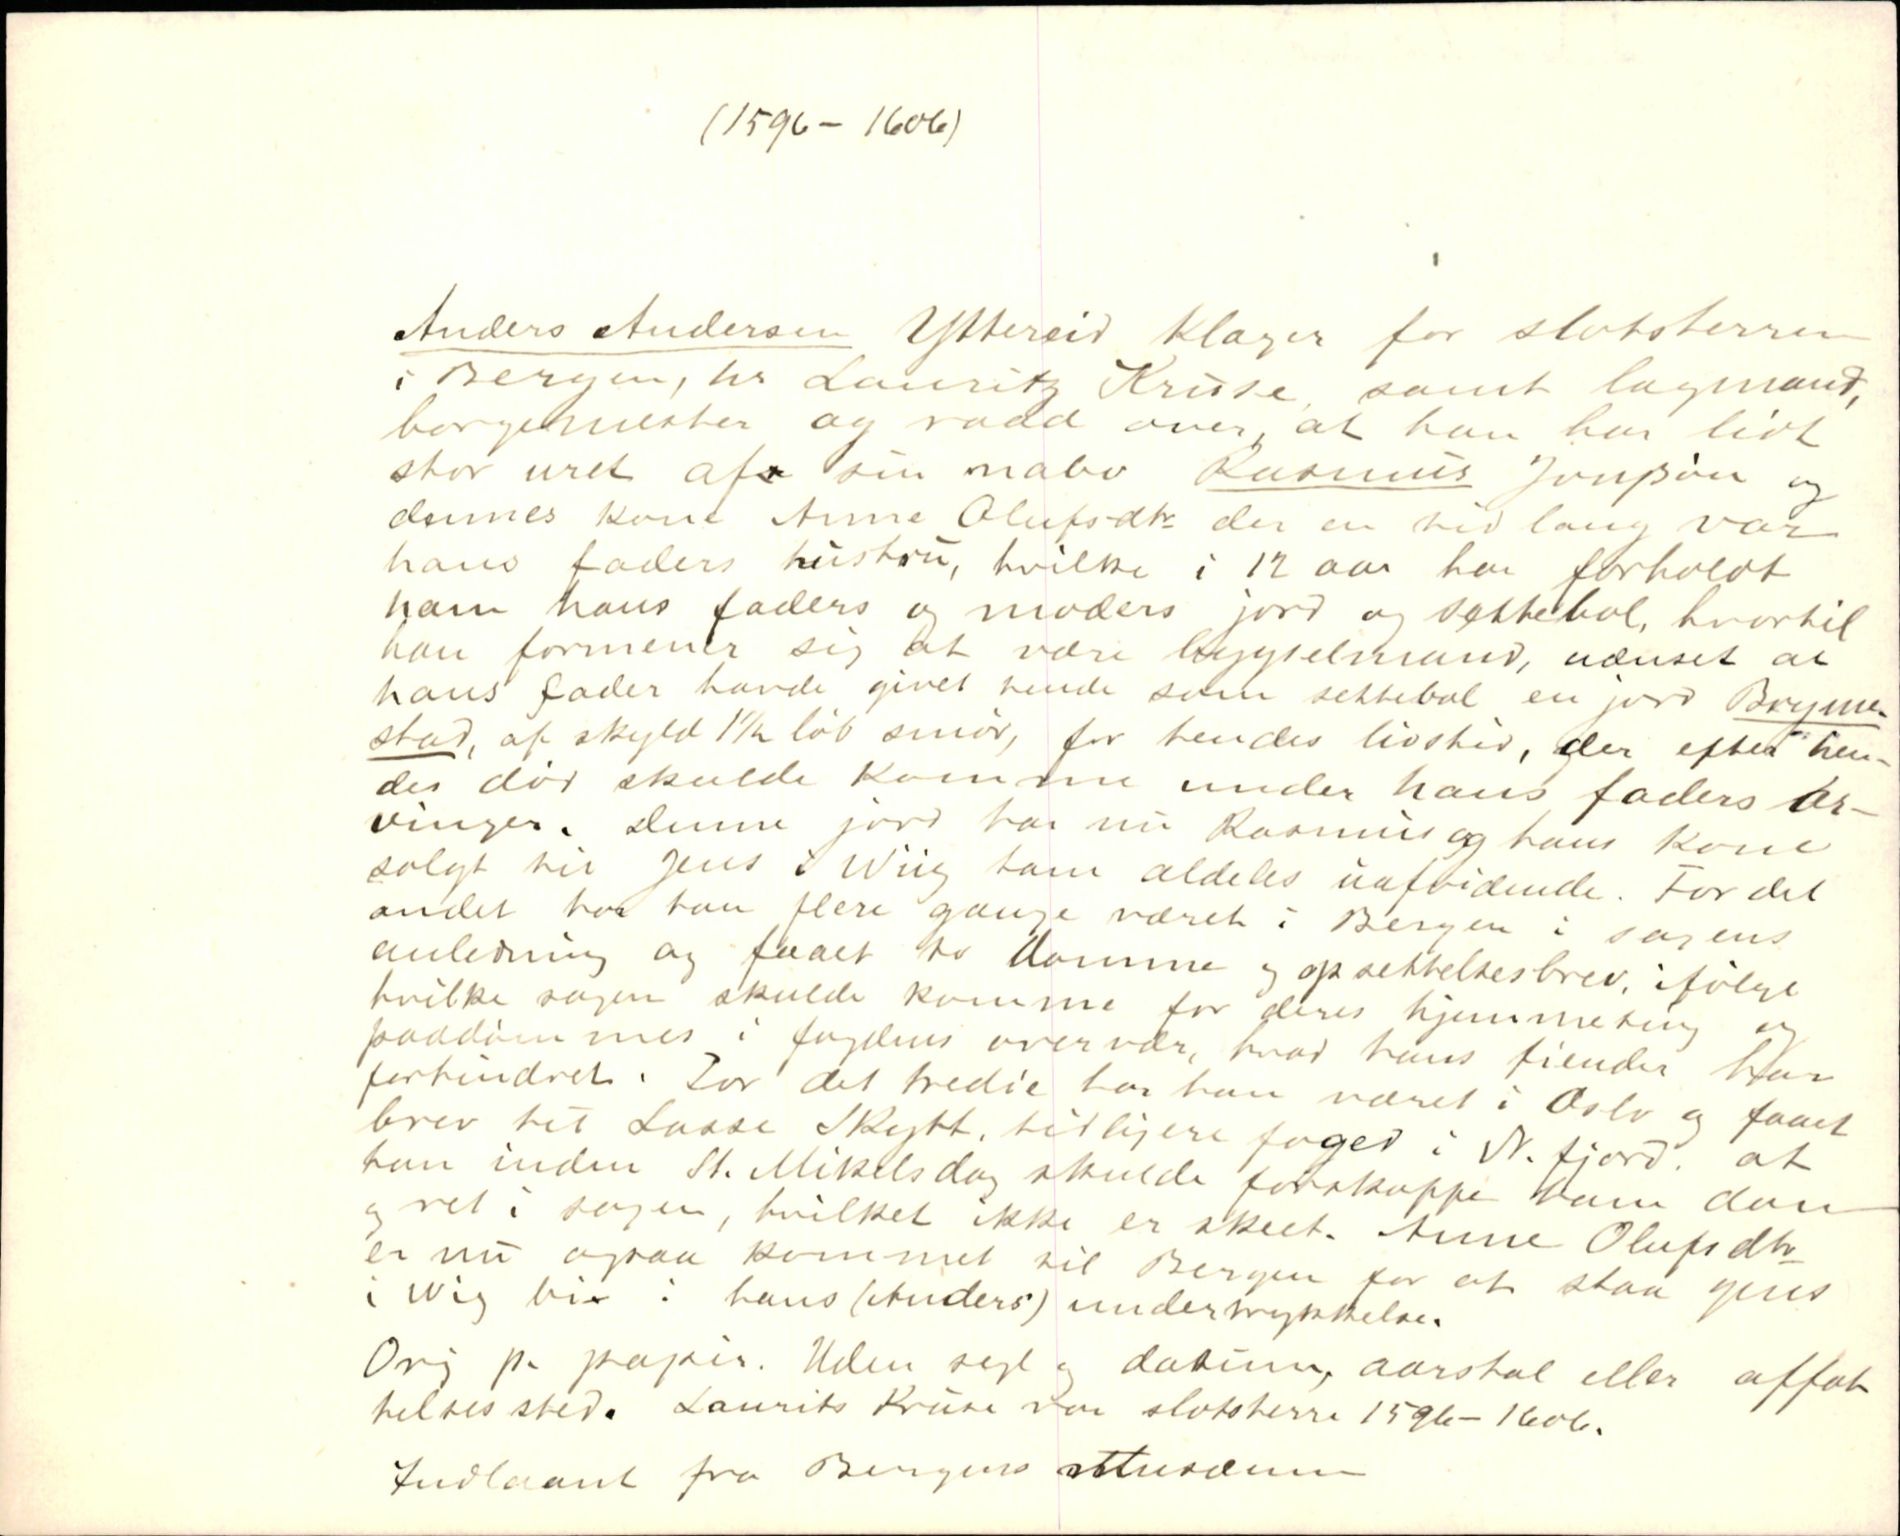 (1596 - 1606)
Anders Andersen Yttereid klager for slotsherren
i Bergen, hr Lauritz Kruse, samt lagmand,
borgemester og raad over, at han har lidt
stor uret af sin nabo Rasmus Jonßön og
dennes kone Anne Olufsdtr der en tid lang var
hans faders hustru, hvilke i 12 aar har forholdt
ham hans faders og moders jord og settebol, hvortil
han formener sig at være bygselmand, uanset at
hans fader havde givet hende som settebol en jord Bryme-
stad, af skyld 1½ löb smör, for hendes livstid, der efter hen-
des död skulde komme under hans faders ar-
vinger. Denne jord har nu Rasmus og hans kone
solgt til Jens i Wiig ham aldeles uafvidende. For det
andet har han flere gange været i Bergen i sagens
anledning og faaet to domme og opsettelsesbrev, ifölge
hvilke sagen skulde komme for deres hjemmeting og
paadömmes i fogdens overvær, hvad hans fiender har
forhindret. For det tredie har han været i Oslo og faaet
brev til Lasse Skytt, tidligere foged i N. fjord, at
han inden St. Mikelsdag skulde forskappe ham dom
og ret i sagen, hvilket ikke er skeet. Anne Olufsdtr
er nu ogsaa kommet til Bergen for at staa Jens
i Wig bi i hans (Anders') undertrykkelse.
Orig p. papir. Uden segl og datum, aarstal eller affat
telses sted. Laurits Kruse var slotsherre 1596 - 1606.
Indlaant fra Bergens Musæum